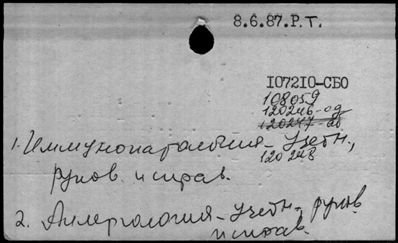 8.6.87.Р.Т.
107210-СБО
108059
120246-од
120247-аб
1. Иммунопатология - Учебн,
120248
руков. и справ.
2. Аллергология - Учебн. руков
и справ.